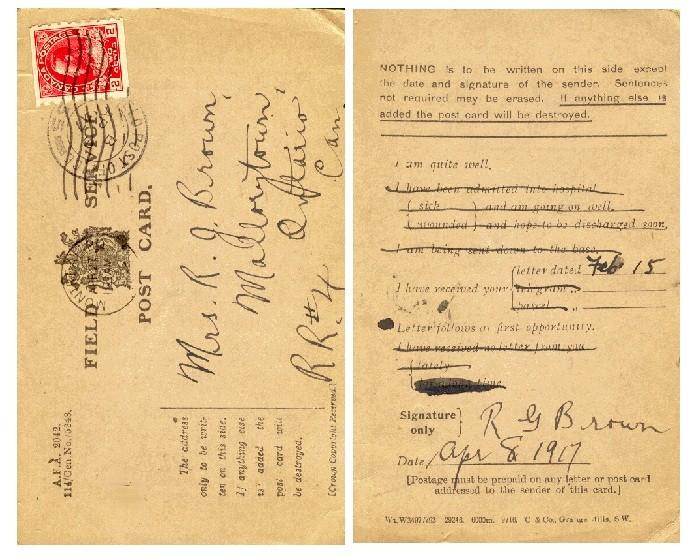 CANADA POSTAGE
2 2
FIELD SERVICE
POST CARD.
Mrs. R. G. Brown,
Mallorytown
Ontario
RR #4 Can
The address
only to be writ-
ten on this side.
If anything else
is added the
post card will
be destroyed.
[Crown Copyright Reserved.]
A.F.A. 2042.
114/Gen.No./5248.
NOTHING is to be written on this side except
the date and signature of the sender. Sentences
not required may be erased. If anything else is
added the post card will be destroyed.
I am quite well.
I have been admitted into hospital
{ sick } and am going on well.
{ wounded } and hope to be discharged soon.
I am being sent down to the base
I have received your { letter dated Feb 15
telegram „
parcel „
Letter follows at first opportunity.
I have received no letter from you
{ lately
Signature only } R G Brown
Date Apr 8 1917
[Postage must be prepaid on any letter or post card
addressed to the sender of this card.]